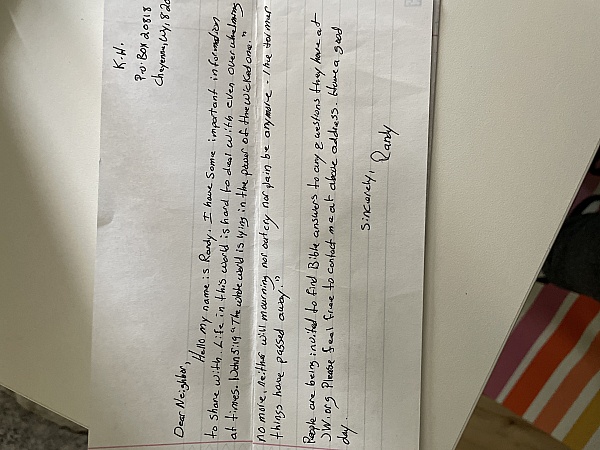 K.H.
P.O Box 20818
Cheyenne, Wy, 820
Dear Neighbor,
Hello my name is Randy. I have some important information
to share with. Life in this world is hard to deal with even overwhelming
at times. 1John 5:19 "The whole world is lying in the power of the wicked one."
no more, neither will mourning nor outcry nor pain be anymore - The former
things have passed away."
People are being invited to find Bible answers to any questions they have at
JW.org Please feel free to contact me at above address. Have a good
day.
Sincerely,
Randy